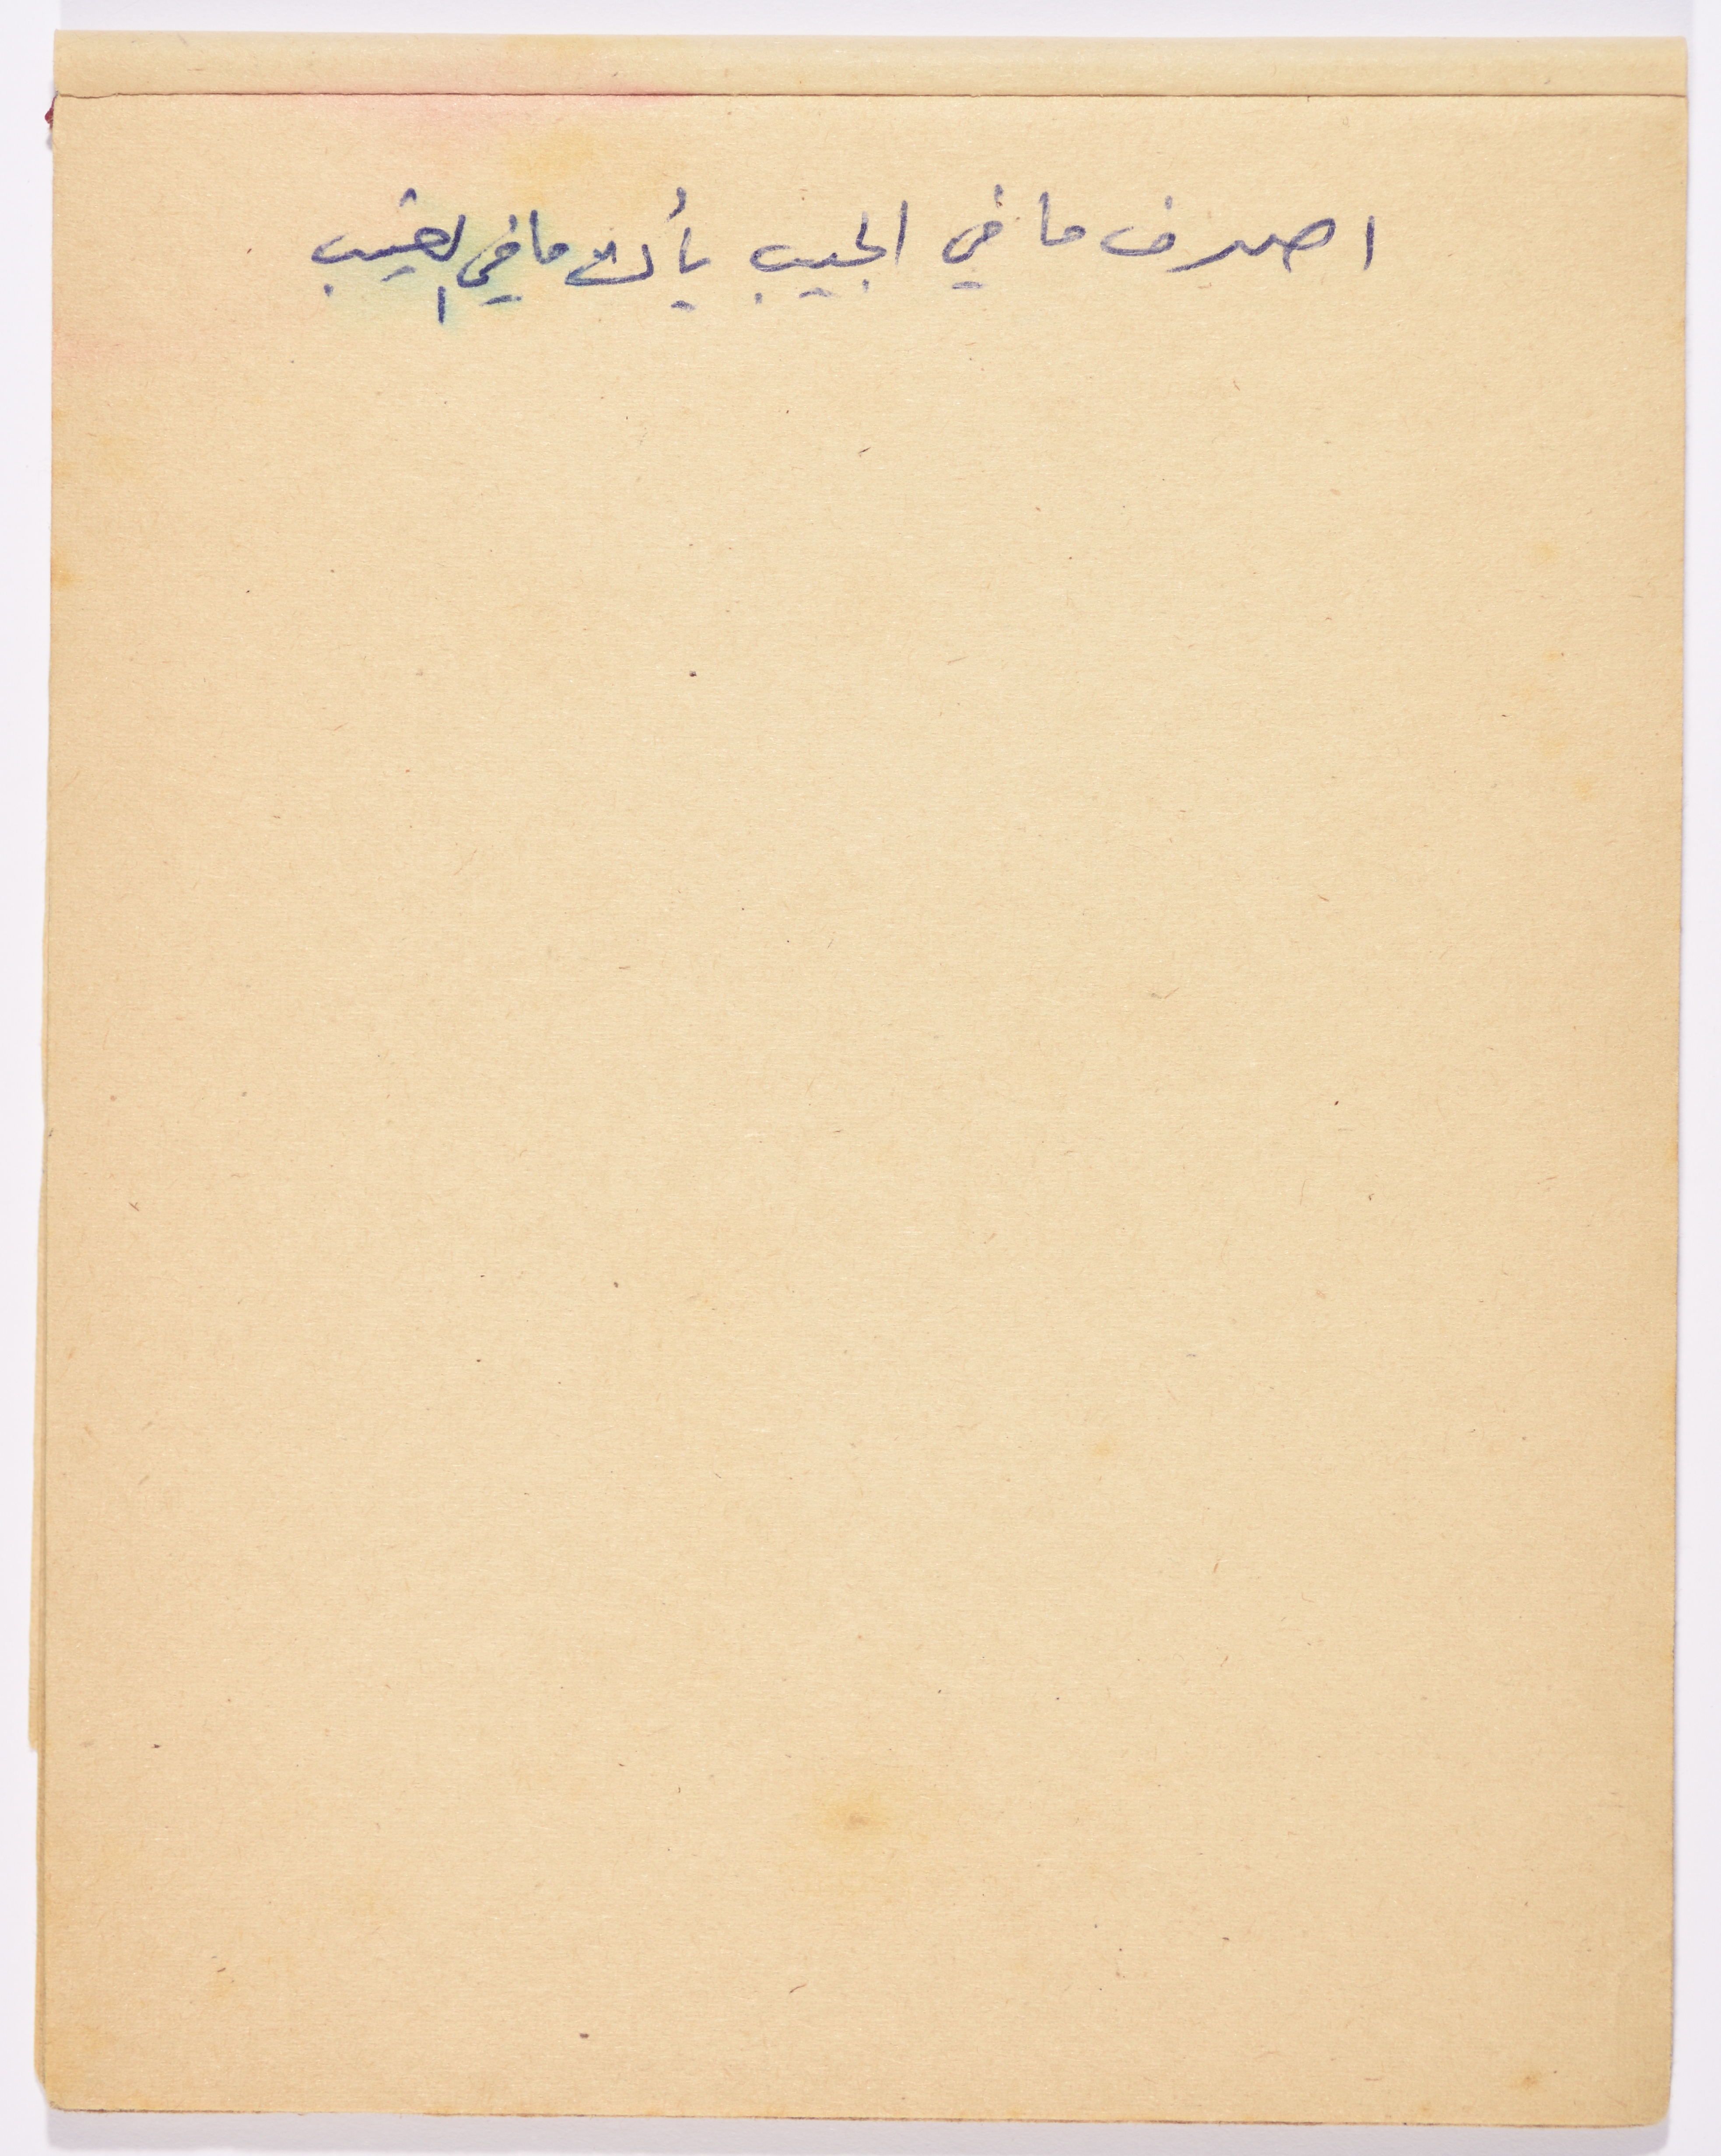 اصرف ما في الجيب يأتك ما في الغيب